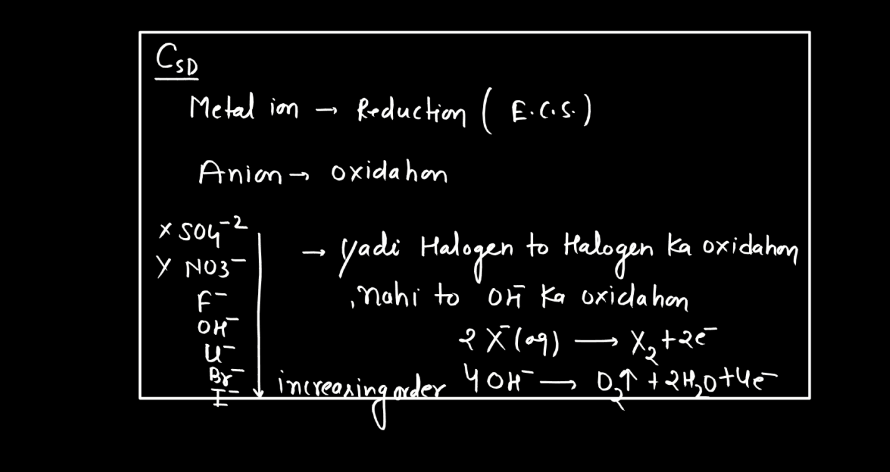 CSD
Metal ion → Reduction ( E.C.S.)
Anion → oxidation
x SO4⁻²
x NO3⁻
F⁻
OH⁻
Cl⁻
Br⁻
I⁻
increasing order
→ yadi Halogen to Halogen ka oxidation
, nahi to OH⁻ ka oxidation
2 X⁻(aq) → X₂ + 2e⁻
4 OH⁻ → O₂↑ + 2H₂O + 4e⁻